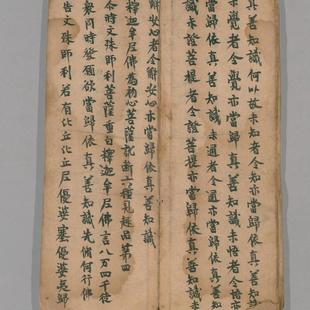 真善知識何以故未知者令知亦當歸依真善知識
未覺者令覺亦當歸依真善知識未悟者令悟亦
真善知識未通者令通亦當歸依真善知識
未證菩提者令證菩提亦當歸依真善知識未
安心者令尔安心亦當歸依真善知識
釋迦牟尼佛為初心菩薩説斷六種見趣品第四
尒時文殊師利菩薩重白釋迦牟尼佛言八万四千徒
衆同時發願欲當歸依真善知識先脩何行佛
告文殊師利若有比丘比丘尼優婆塞優婆夷歸